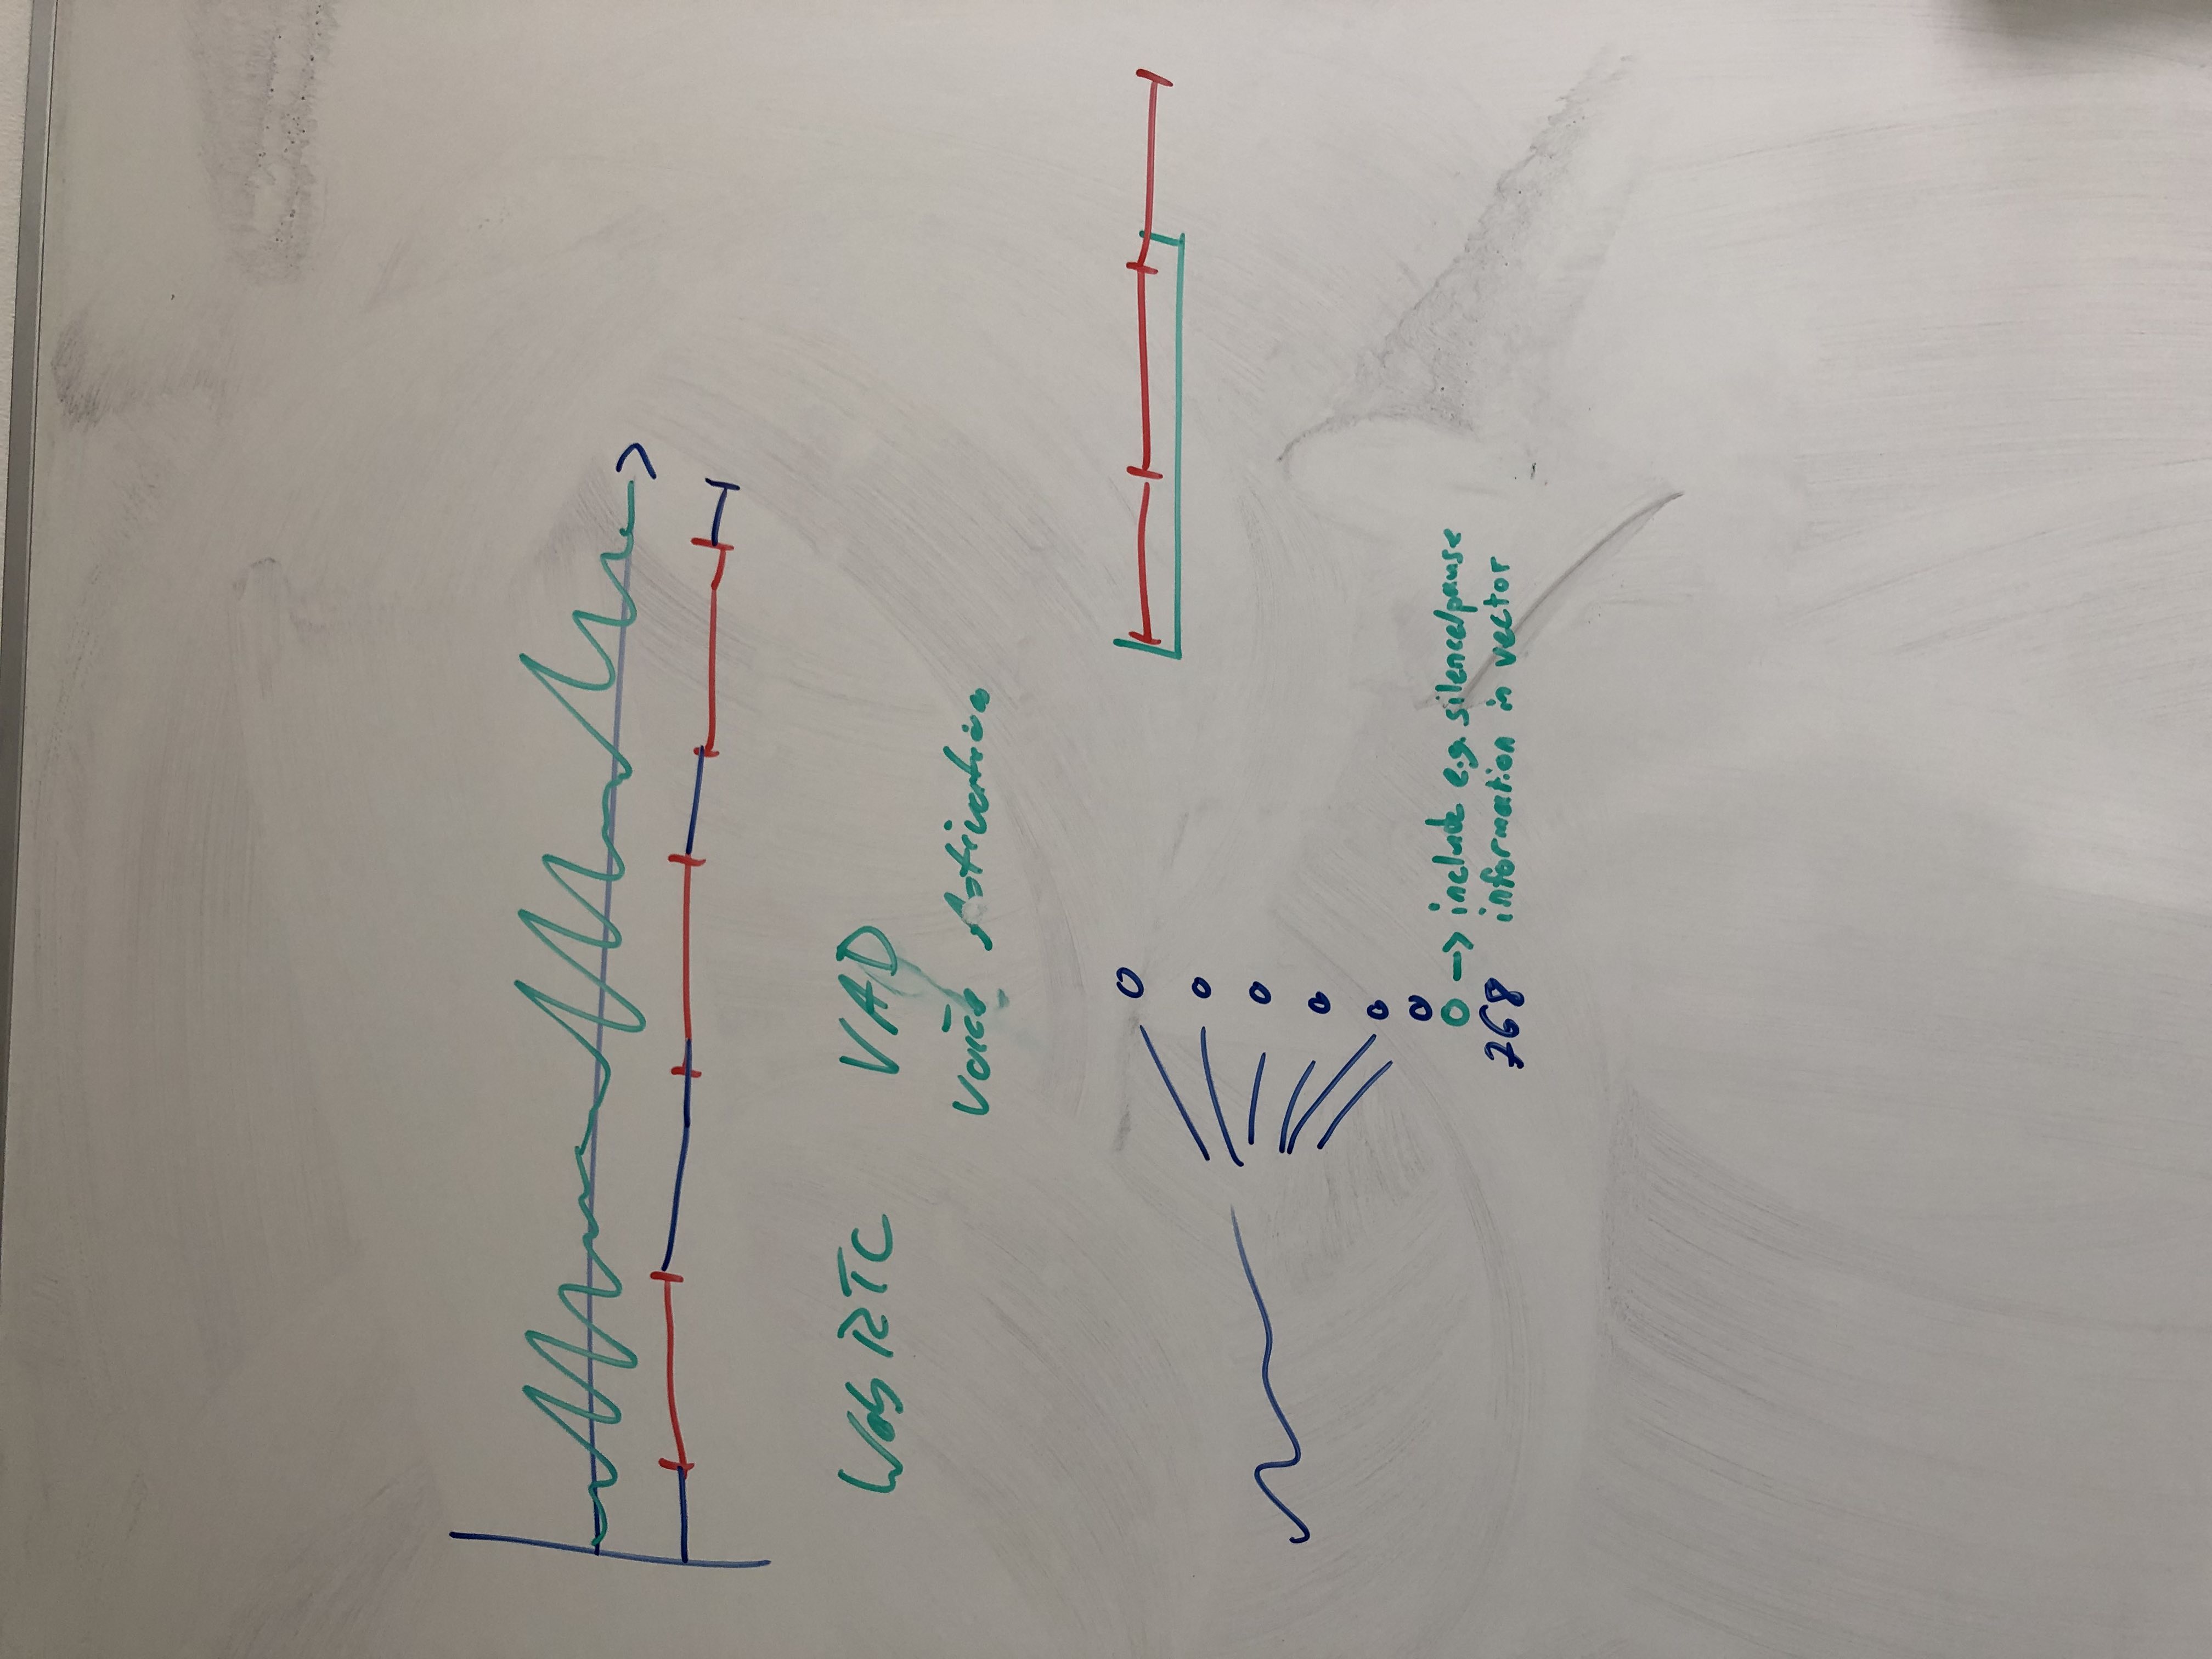 WebRTC VAD
Voice Activation
O -> include e.g. silence/pause
768 information in vector